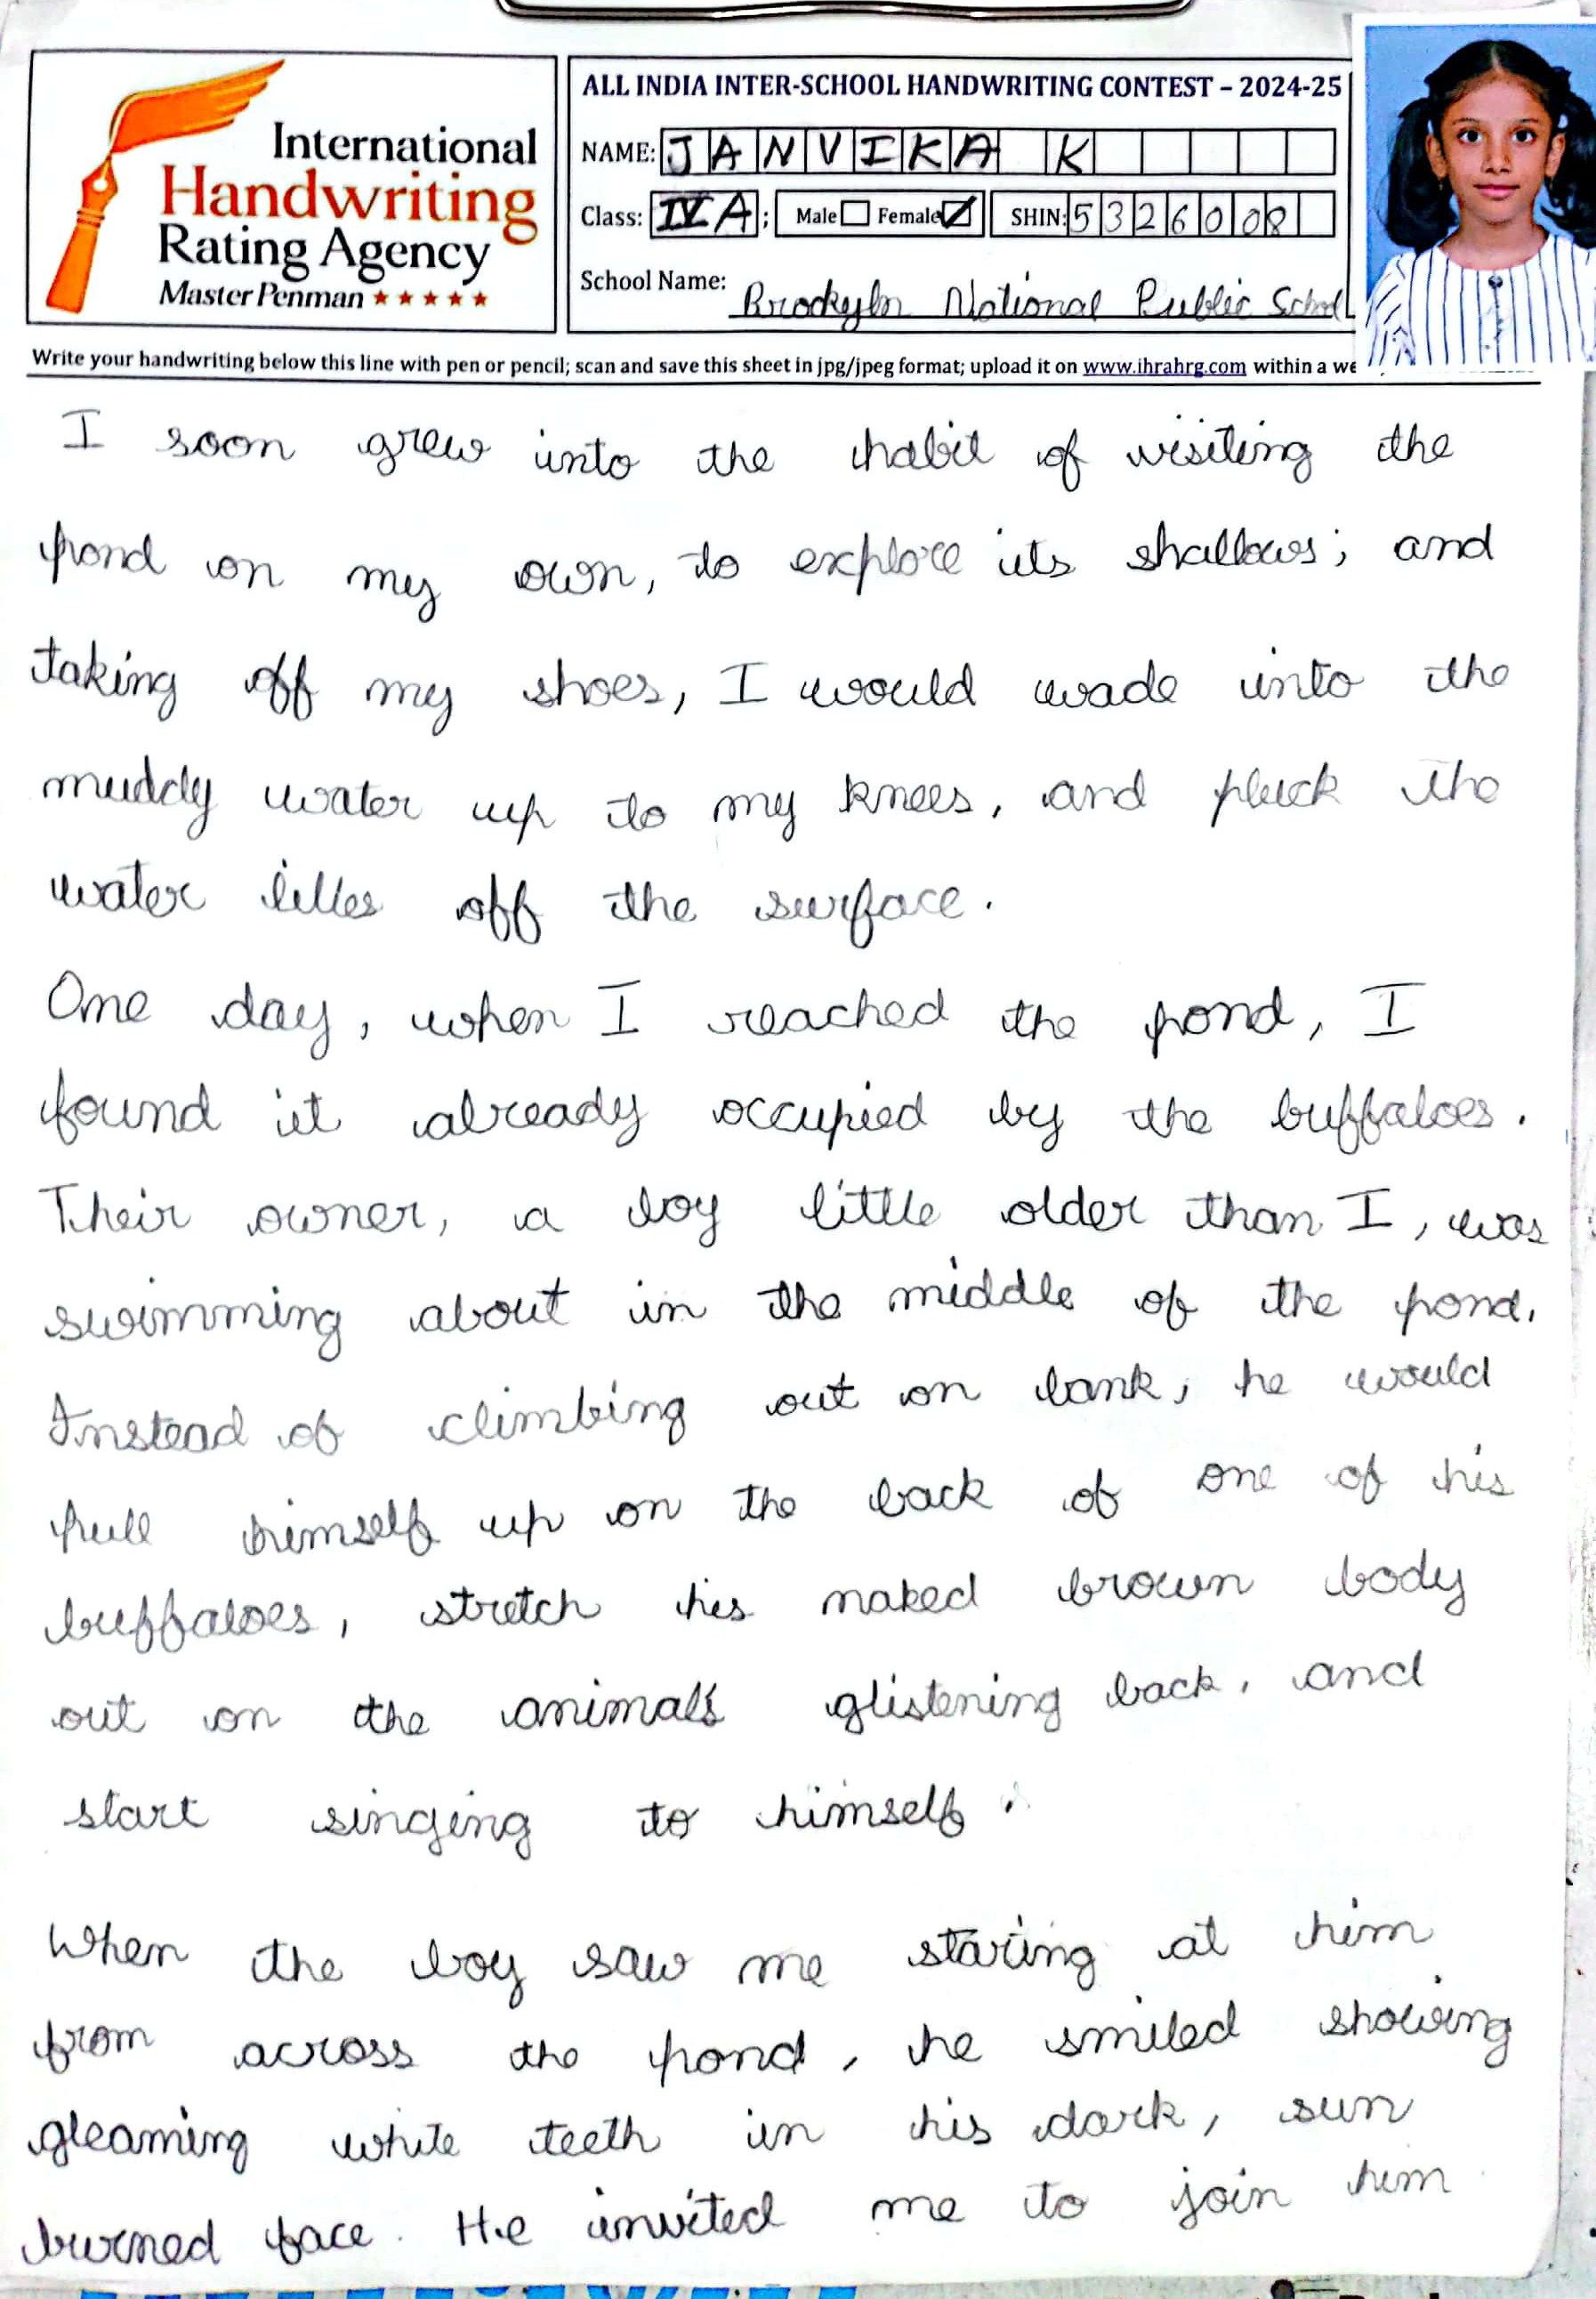 International
Handwriting
Rating Agency
Master Penman ★★★★★
ALL INDIA INTER-SCHOOL HANDWRITING CONTEST – 2024-25
NAME: JANVIKA K
Class: IV A; Male Female SHIN: 5326008
School Name: Brookyln National Public School
Write your handwriting below this line with pen or pencil; scan and save this sheet in jpg/jpeg format; upload it on www.ihrahrg.com within a we
I soon grew into the habit of visiting the
pond on my own, to explore its shallows; and
taking off my shoes, I would wade into the
muddy water up to my knees, and pluck the
water lilles off the surface.
One day, when I reached the pond, I
found it already occupied by the buffaloes.
Their owner, a boy little older than I, was
swimming about in the middle of the pond.
Instead of climbing out on bank, he would
pull himself up on the back of one of his
buffaloes, stretch his naked brown body
out on the animals glistening back, and
start singing to himself.
When the boy saw me staring at him
from across the pond, he smiled showing
gleaming white teeth in his dark, sun
burned face. He invited me to join him